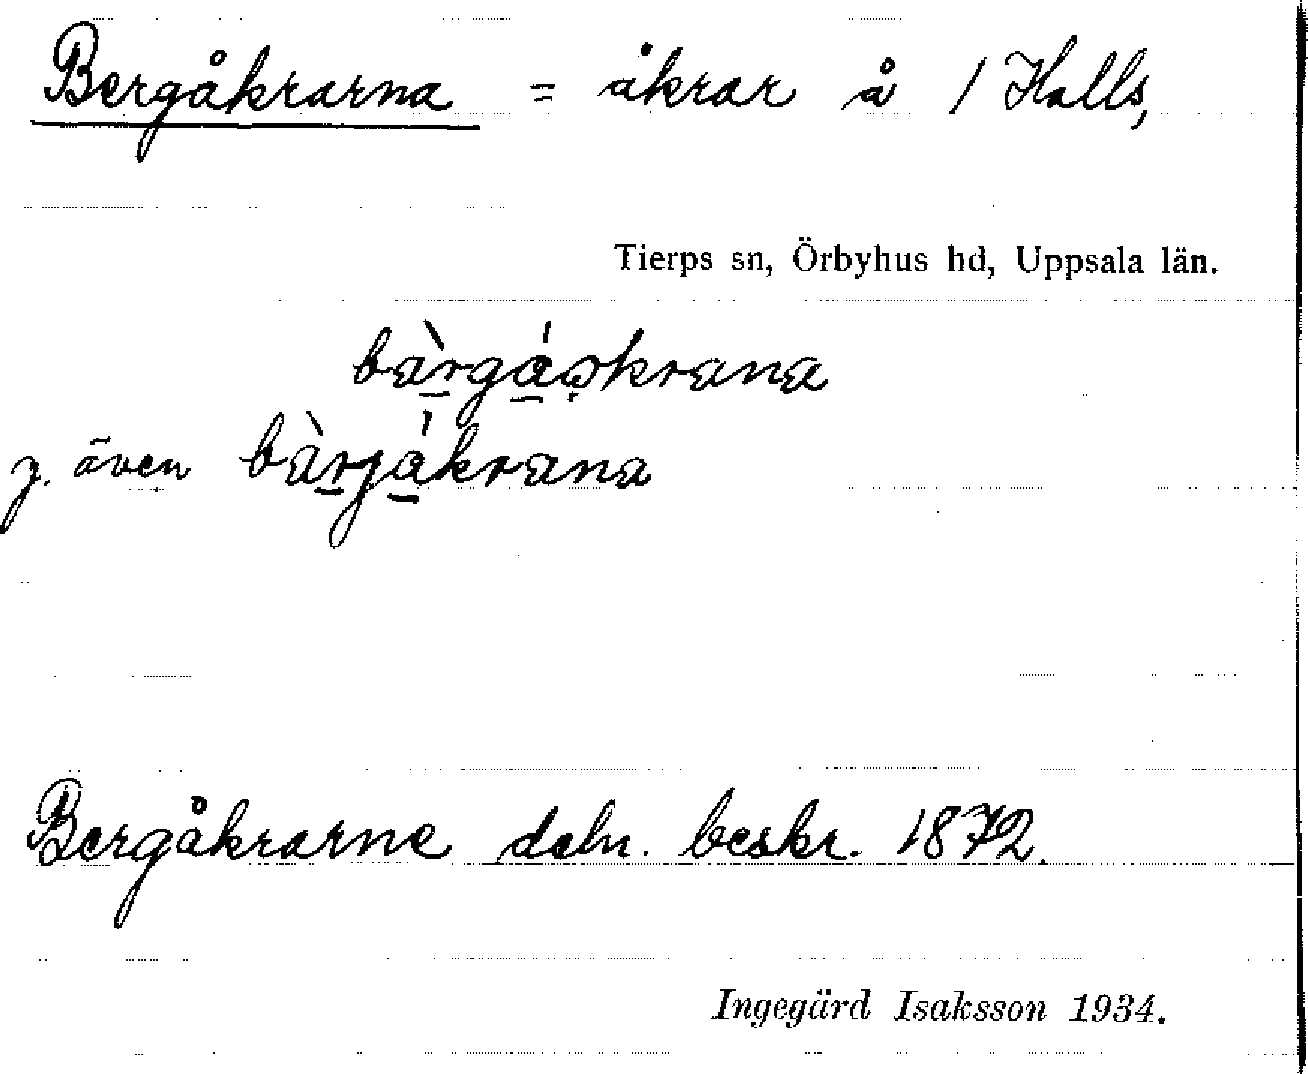 Bergåkrarna = åkrar å 1 Halls,
Tierps sn, Örbyhus hd, Uppsala län.
bàrgáọkrana
y. även bàrjákrana
Bergåkrarne deln. beskr. 1872.
Ingegärd Isaksson 1934.